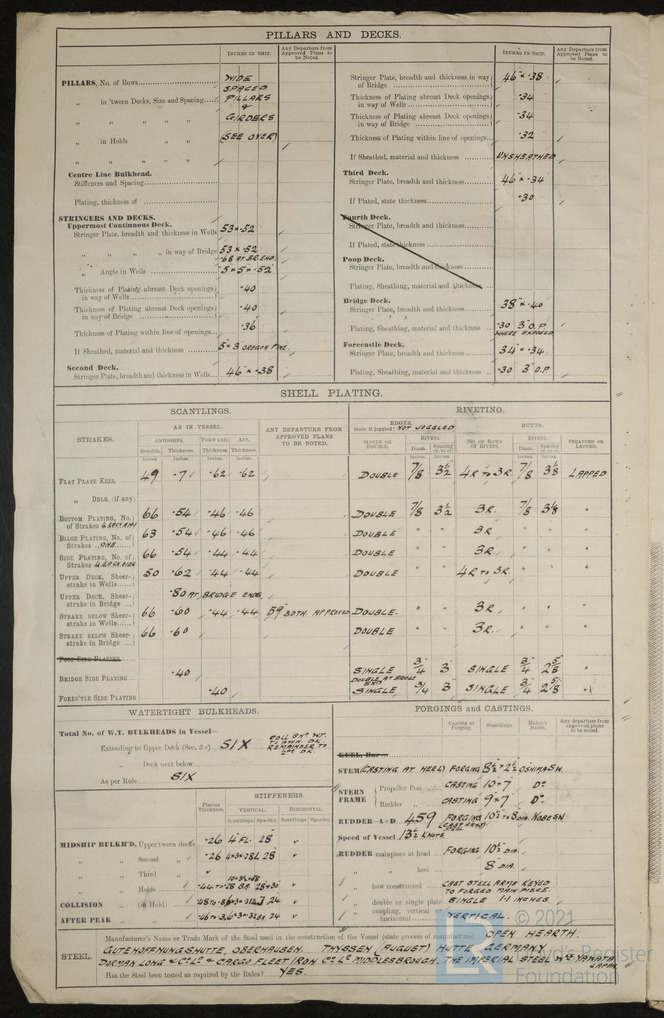 PILLARS AND DECKS.
INCHES IN SHIP.
Any Departure from Approved Plans to be Noted.
PILLARS, No. of Rows
WIDE SPACED PILLARS & GIRDERS (SEE OVER)
" in 'tween Decks, Size and Spacing
" " " "
" in Holds " "
" " " "
Centre Line Bulkhead.
Stiffeners and Spacing
Plating, thickness of
STRINGERS AND DECKS.
Uppermost Continuous Deck.
Stringer Plate, breadth and thickness in Wells 53 × .52
" " " " in way of Bridge 53 × .52
.68 AT BR. END.
" Angle in Wells 5 × 5 × .52
Thickness of Plating abreast Deck openings in way of Wells .40
Thickness of Plating abreast Deck openings in way of Bridge .40
Thickness of Plating within line of openings .36
If Sheathed, material and thickness 5 × 3 OREGON PINE
Second Deck.
Stringer Plate, breadth and thickness in Wells 46 × .38
INCHES IN SHIP.
Any Departure from Approved Plans to be Noted.
Stringer Plate, breadth and thickness in way of Bridge 46 × .38
Thickness of Plating abreast Deck openings in way of Wells .34
Thickness of Plating abreast Deck openings in way of Bridge .34
Thickness of Plating within line of openings .32
If Sheathed, material and thickness UNSHEATHED
Third Deck.
Stringer Plate, breadth and thickness 46 × .34
If Plated, state thickness .30
Fourth Deck.
Stringer Plate, breadth and thickness
If Plated, state thickness
Poop Deck.
Stringer Plate, breadth and thickness
Plating, Sheathing, material and thickness
Bridge Deck.
Stringer Plate, breadth and thickness 38 × .40
Plating, Sheathing, material and thickness .30 3" O.P. WHERE EXPOSED
Forecastle Deck.
Stringer Plate, breadth and thickness 34 × .34
Plating, Sheathing, material and thickness .30 3" O.P
SHELL PLATING.
SCANTLINGS.
RIVETING.
STRAKES.
AS IN VESSEL.
AMIDSHIPS. FORWARD. AFT.
Breadth. Thickness. Thickness. Thickness.
Inches. Inches. Inches. Inches.
ANY DEPARTURE FROM APPROVED PLANS TO BE NOTED.
EDGES.
State if joggled? NOT JOGGLED
SINGLE OR DOUBLE.
RIVETS.
Diam. Spacing cr. to cr.
BUTTS.
NO. OF ROWS OF RIVETS.
RIVETS.
Diam. Spacing cr. to cr.
STRAPPED OR LAPPED.
FLAT PLATE KEEL 49 .71 .62 .62 DOUBLE 7/8 3½ 4R TO 3R. 7/8 3⅛ LAPPED
" DBLG. (if any)
BOTTOM PLATING, No. of Strakes 66 .54 .46 .46 DOUBLE 7/8 3½ 3R. 7/8 3⅛ "
BILGE PLATING, No. of Strakes ONE 63 .54 .46 .46 DOUBLE " " 3R " " "
SIDE PLATING, No. of Strakes 66 .54 .44 .44 DOUBLE " " 3R " " "
UPPER DECK, Sheer-strake in Wells 50 .62 .44 .44 DOUBLE " " 4R TO 3R. " " "
UPPER DECK, Sheer-strake in Bridge .80 AT BRIDGE ENDS
STRAKE BELOW Sheer-strake in Wells 66 .60 .44 .44 59 BOTH APPROVED DOUBLE. " " 3R. " " "
STRAKE BELOW Sheer-strake in Bridge 66 .60 DOUBLE " " 3R. " " "
POOP SIDE PLATING
BRIDGE SIDE PLATING .40 SINGLE 3/4 3 SINGLE 3/4 2⅝ "
DOUBLE AT BRIDGE END
FOREC'TLE SIDE PLATING .40 SINGLE 3/4 3 SINGLE 3/4 2⅝ "
WATERTIGHT BULKHEADS.
Total No. of W.T. BULKHEADS in Vessel—
Extending to Upper Deck (Sec. 3 c) SIX
REMAINDER TO 2ND DK.
" Deck next below
As per Rule SIX
STIFFENERS.
Plating Thickness.
VERTICAL. HORIZONTAL.
Scantlings Spacing. Scantlings Spacing.
MIDSHIP BULKH'D, Upper 'tween decks .26 4" FL. 28
" " Second " .26 28
" " Third "
" " Holds
COLLISION " (in Hold) 24
AFTER PEAK " " 24
FORGINGS and CASTINGS.
Casting or Forging.
Scantlings.
Maker's Name.
Any departure from approved plans to be noted.
KEEL, Bar
STEM (CASTING AT HEEL) FORGING 8½ × 2½ OSHIMA S.W.
STERN FRAME
Propeller Post CASTING 10 × 7 Do
Rudder " CASTING 9 × 7 Do
RUDDER—A×D 459 FORGING 10½ TO 8 DIA. KOBE S.W
Speed of Vessel 13½ KNOTS
RUDDER mainpiece at head FORGING 10½ DIA.
" " heel 8 DIA.
" how constructed CAST STEEL ARMS KEYED TO FORGED MAIN PIECE.
" double or single plate SINGLE 1.1 INCHES
" coupling, vertical or horizontal VERTICAL.
STEEL.
Manufacturer's Name or Trade Mark of the Steel used in the construction of the Vessel (state process of manufacture) OPEN HEARTH.
GUTEHOFFNUNGSHUTTE, OBERHAUSEN. THYSSEN (AUGUST) HUTTE GERMANY.
DORMAN LONG & Co Ld & CARGO FLEET IRON Co Ld MIDDLESBROUGH. THE IMPERIAL STEEL Wks YAWATA JAPAN
Has the Steel been tested as required by the Rules? YES.
© 2021
Lloyd's Register
Foundation
LR